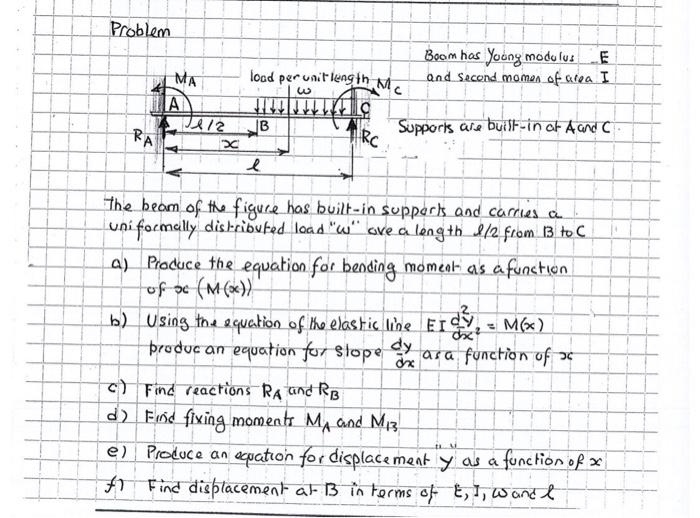 Problem
Beam has Young modulus E
and second momen of area I
MA load per unit length Mc
w
A C
l/2 B
RA x Rc
Supports are built-in at A and C.
l
The beam of the figure has built-in supports and carries a
uniformally distributed load "w" ove a length l/2 from B to C
a) Produce the equation for bending moment as a function
of x (M(x))
b) Using the equation of the elastic line EI d²y/dx² = M(x)
produc an equation for slope dy/dx as a function of x
c) Find reactions RA and RB
d) Find fixing moments MA and MB
e) Produce an equation for displacement "y" as a function of x
f) Find displacement at B in terms of E, I, w and l